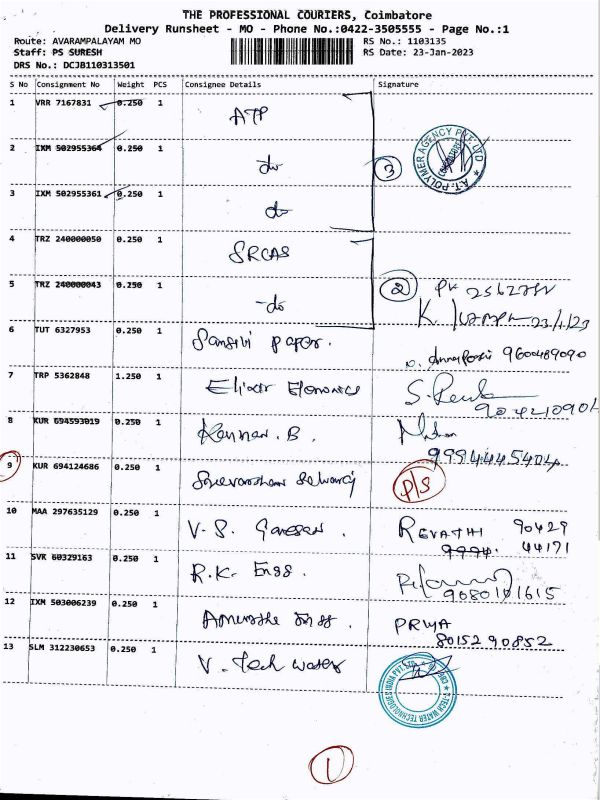 THE PROFESSIONAL COURIERS, Coimbatore
Delivery Runsheet - MO - Phone No.:0422-3505555 - Page No.:1
Route: AVARAMPALAYAM MO RS No.: 1103135
Staff: PS SURESH RS Date: 23-Jan-2023
DRS No.: DCJB110313501
S No Consignment No Weight PCS Consignee Details Signature
1 VRR 7167831 0.250 1 ATP
2 IXM 502955364 0.250 1 do 3
3 IXM 502955361 0.250 1 do
4 TRZ 240000050 0.250 1 SRCAS
5 TRZ 240000043 0.250 1 do 2
K. 23/1/23
6 TUT 6327953 0.250 1 paper. 9600489090
7 TRP 5362848 1.250 1 S.
8 KUR 694593019 0.250 1 Kannan. B.
9994445404
9 KUR 694124686 0.250 1 P/S
10 MAA 297635129 0.250 1 V. S. Ganesan. REVATHI 90429
44171
11 SVR 60329163 0.250 1 R.K. Engg.
9080101615
12 IXM 503006239 0.250 1 PRIYA
8015290852
13 SLM 312230653 0.250 1 V. Tech water
A.T. POLYMER AGENCY PVT. LTD
V-TECH WATER TECHNOLOGIES INDIA PVT. LTD
1